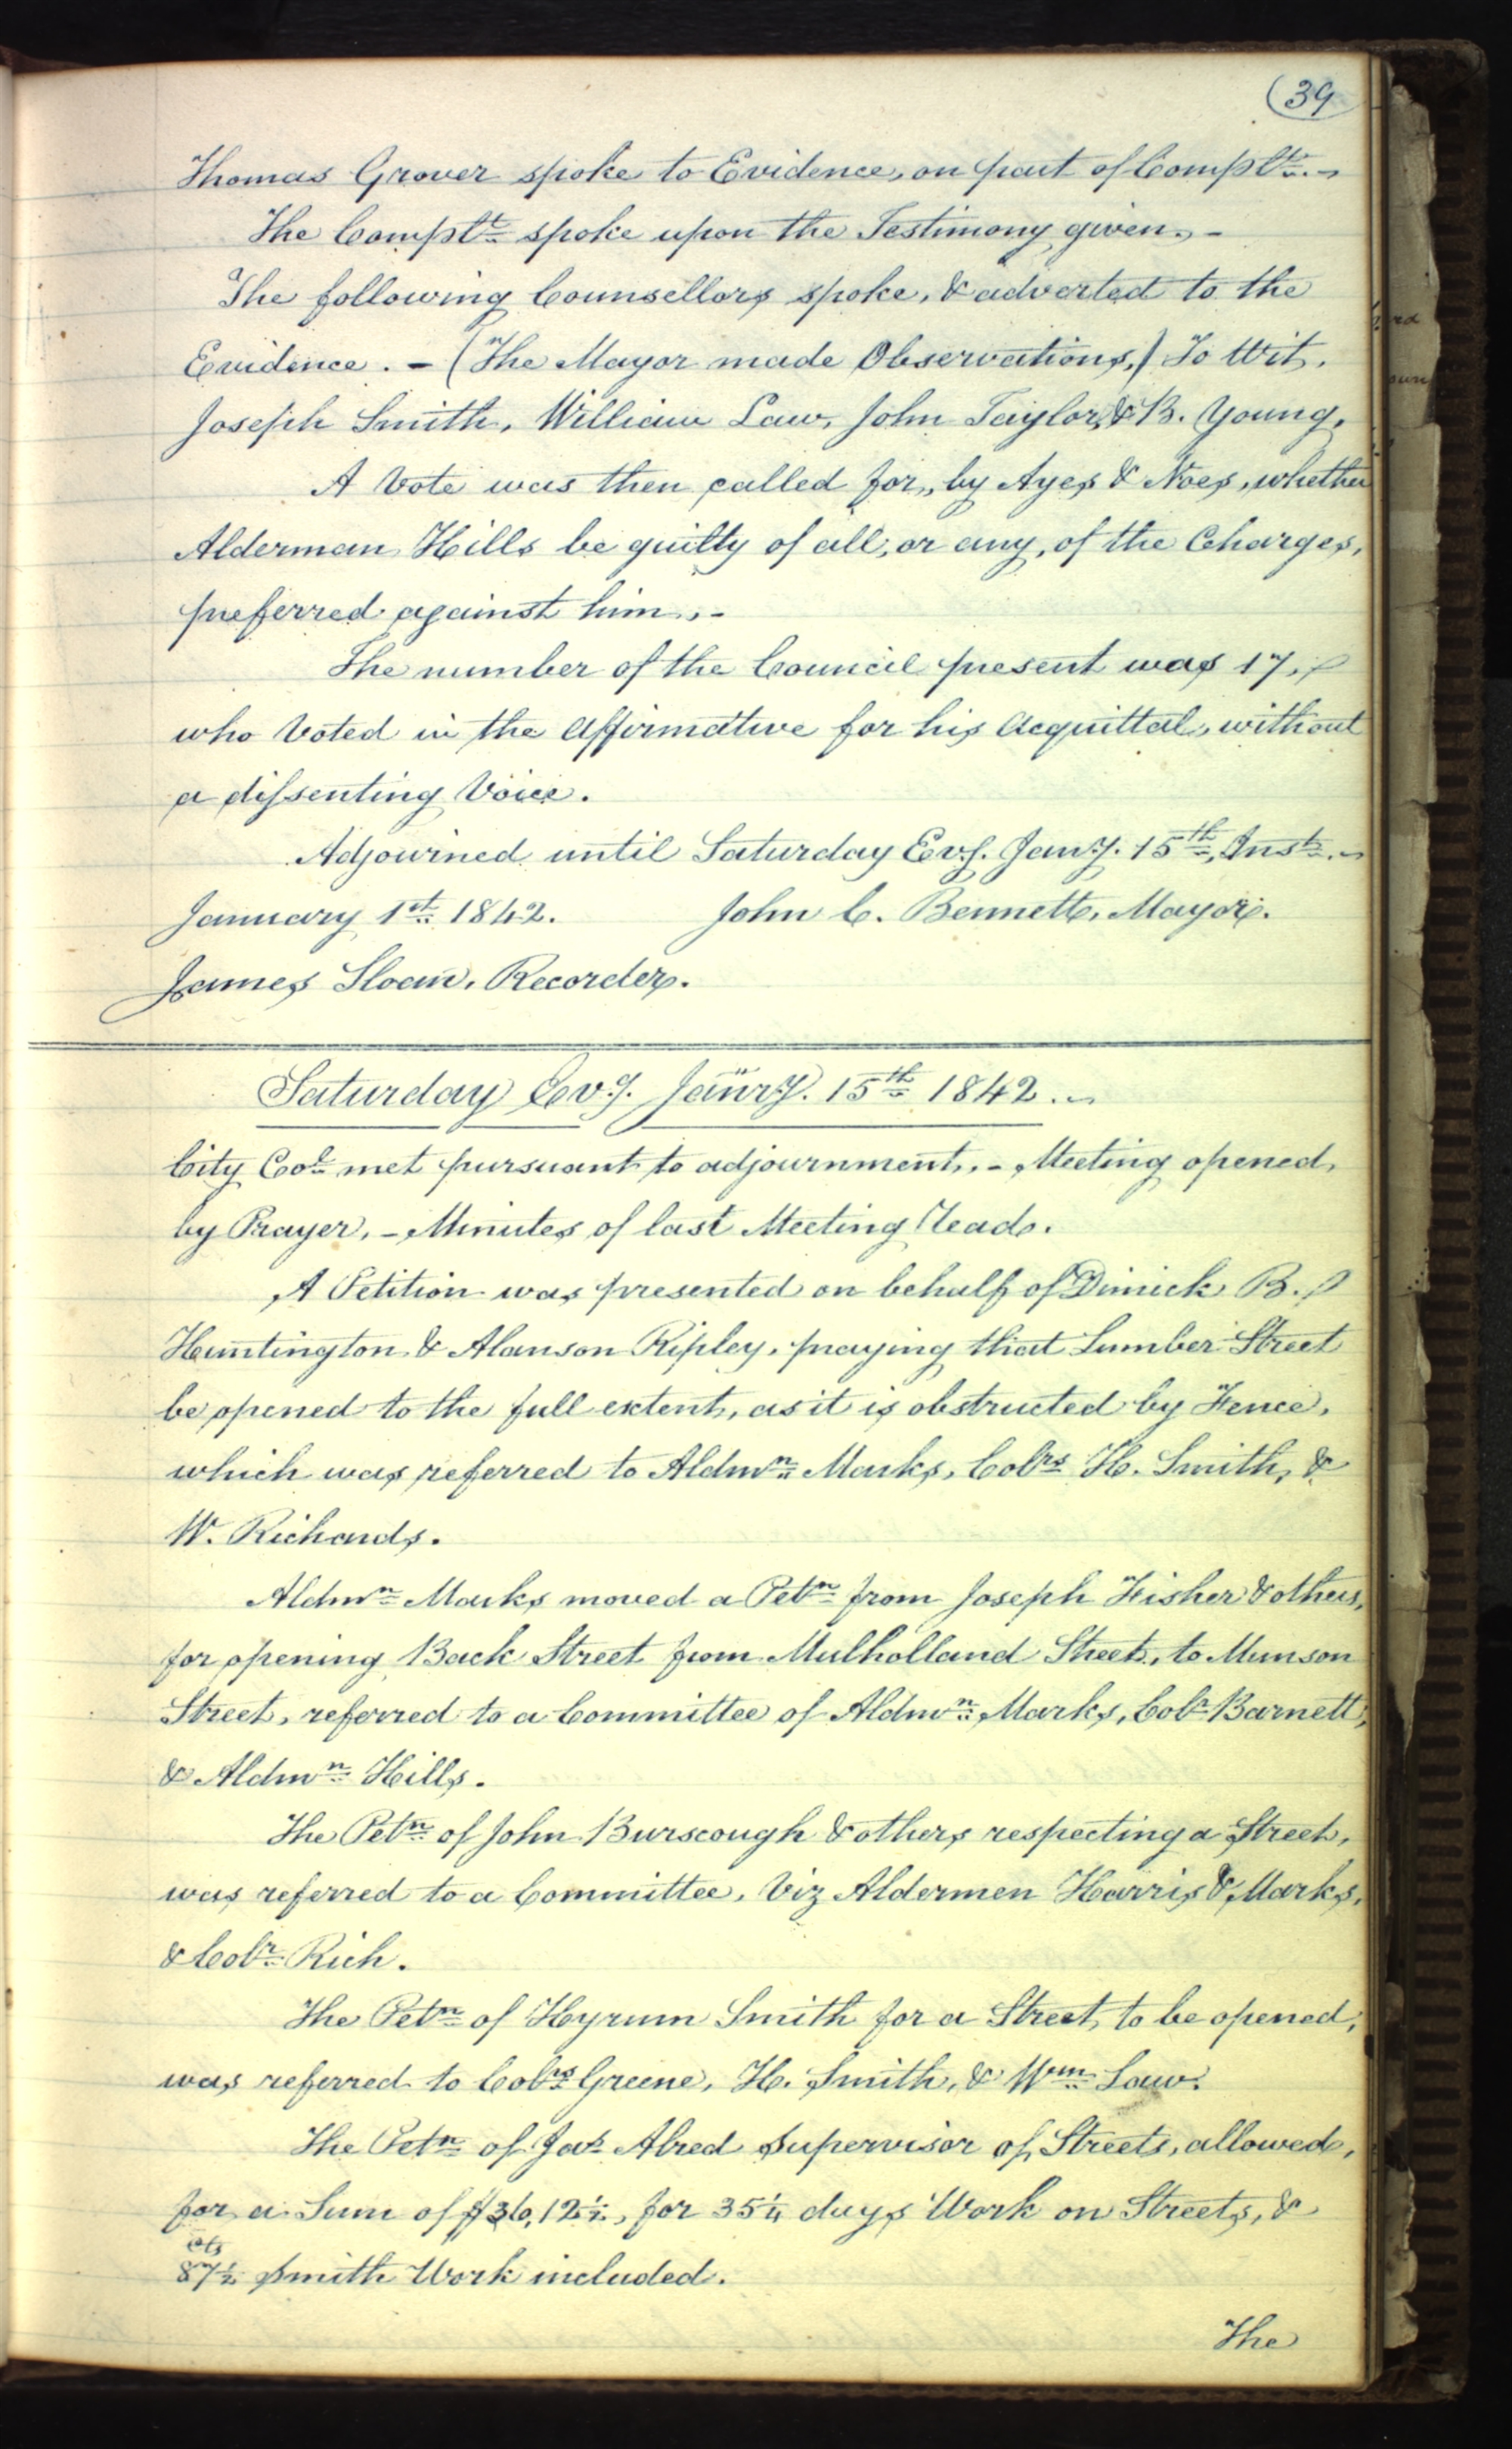 (39
Thomas Grover spoke to Evidence, on part of Complt.. -
The Complt. spoke upon the Testimony given. -
The following Counsellors spoke, & adverted to the
Evidence. - (The Mayor made Observations,) To Wit,
Joseph Smith, William Law, John Taylor, & B. Young.
A Vote was then called for, by Ayes & Noes, whether
Alderman Hills be guilty of all, or any, of the Charges,
preferred against him. -
The number of the Council present was 17,
who Voted in the Affirmative for his Acquittal, without
a dissenting Voice.
Adjourned until Saturday Evg. Jany. 15th, Inst. -
January 1st. 1842. John C. Bennett, Mayor.
James Sloan, Recorder.
Saturday Evg. Janry. 15th 1842. -
City Col. met pursuant to adjournment, - Meeting opened,
by Prayer, - Minutes of last Meeting read.
A Petition was presented on behalf of Dimick B.
Huntington & Alanson Ripley, praying that Lumber Street
be opened to the full extent, as it is obstructed by Fence,
which was referred to Aldmn. Marks, Colrs. H. Smith, &
W. Richards.
Aldmn. Marks moved a Petn. from Joseph Fisher & others,
for opening Back Street from Mulholland Street, to Munson
Street, referred to a Committee of Aldmn. Marks, Colr. Barnett,
& Aldmn. Hills.
The Petn. of John Burscough & others respecting a Street,
was referred to a Committee, Viz Aldermen Harris & Marks,
& Colr. Rich.
The Petn. of Hyrum Smith for a Street, to be opened,
was referred to Colrs. Greene, H. Smith, & Wm. Law.
The Petn. of Jas. Alred Supervisor of Streets, allowed,
for a Sum of $36,12½, for 35¼ days Work on Streets, &
cts
87½ Smith Work included.
The